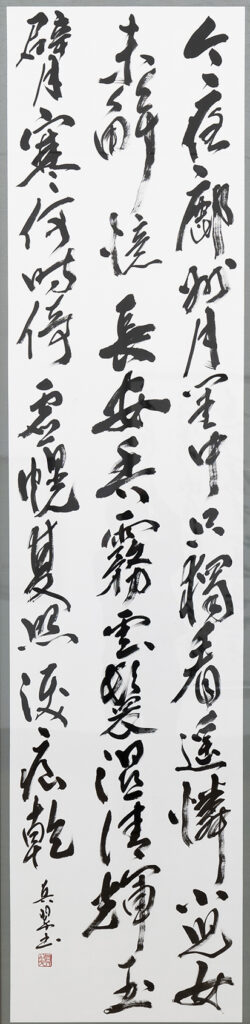 今夜鄜州月閨中只獨看遥憐小兒女
未解憶長安香霧雲鬟濕清輝玉
臂寒何時倚虚幌雙照淚痕乾